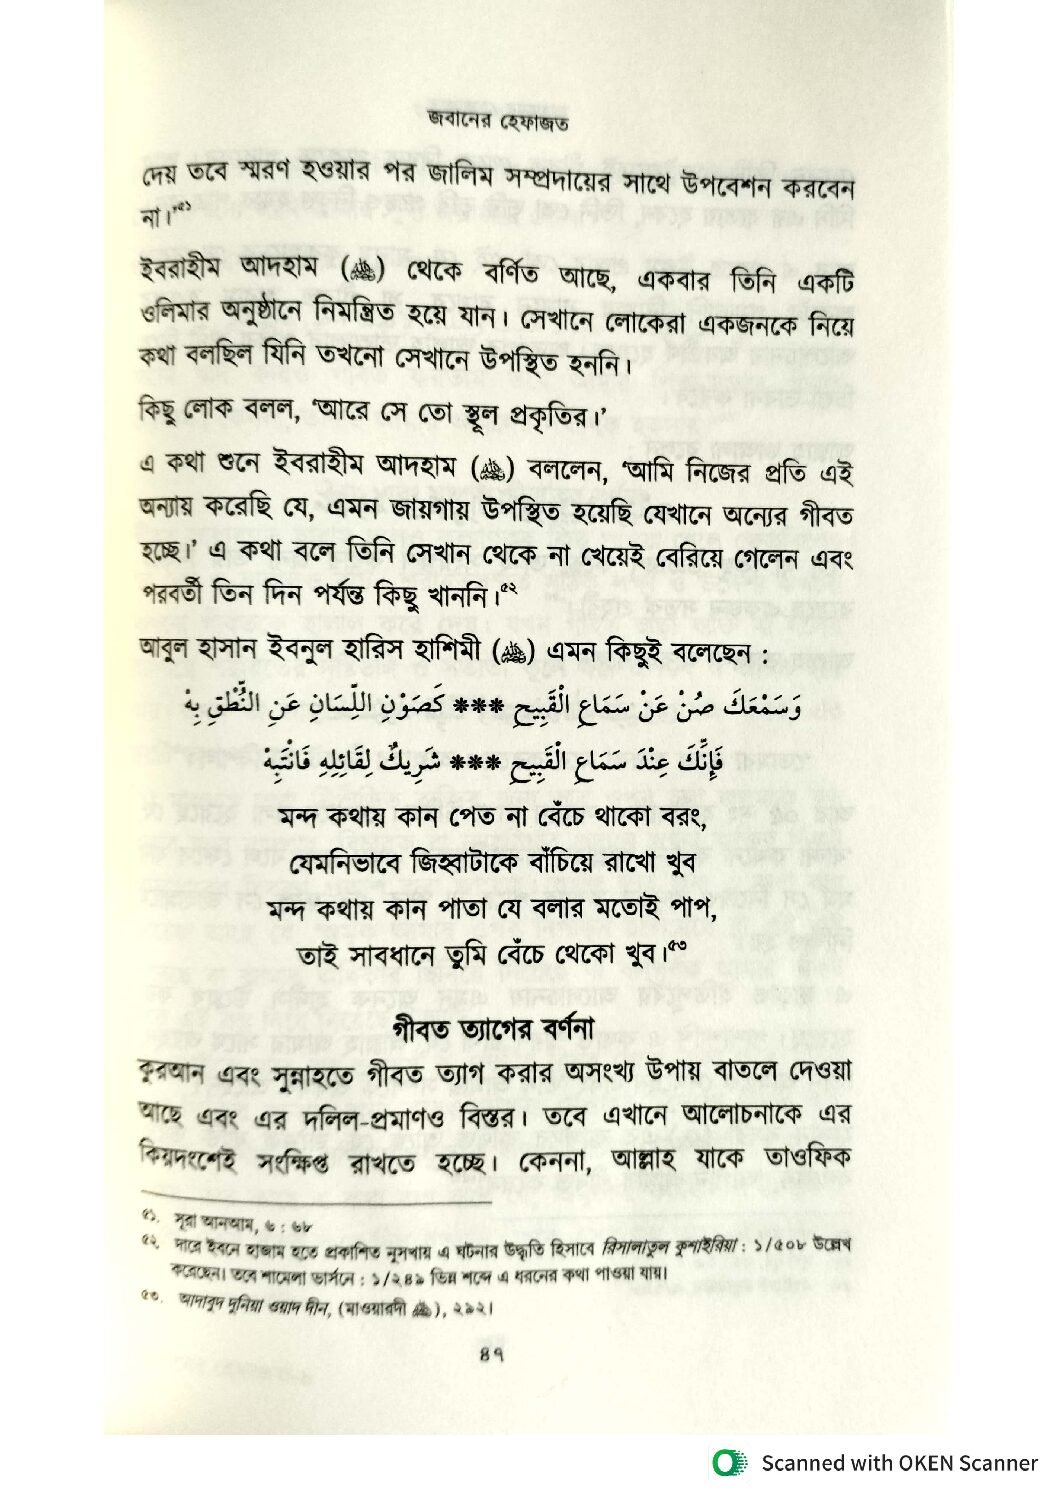 জবানের হেফাজত
দেয় তবে স্মরণ হওয়ার পর জালিম সম্প্রদায়ের সাথে উপবেশন করবেন
না।’৫১
ইবরাহীম আদহাম (ﷺ) থেকে বর্ণিত আছে, একবার তিনি একটি
ওলিমার অনুষ্ঠানে নিমন্ত্রিত হয়ে যান। সেখানে লোকেরা একজনকে নিয়ে
কথা বলছিল যিনি তখনো সেখানে উপস্থিত হননি।
কিছু লোক বলল, ‘আরে সে তো স্থূল প্রকৃতির।’
এ কথা শুনে ইবরাহীম আদহাম () বললেন, ‘আমি নিজের প্রতি এই
অন্যায় করেছি যে, এমন জায়গায় উপস্থিত হয়েছি যেখানে অন্যের গীবত
হচ্ছে।’ এ কথা বলে তিনি সেখান থেকে না খেয়েই বেরিয়ে গেলেন এবং
পরবর্তী তিন দিন পর্যন্ত কিছু খাননি।৫২
আবুল হাসান ইবনুল হারিস হাশিমী () এমন কিছুই বলেছেন :
وَسَمْعَكَ صُنْ عَنْ سَمَاعِ الْقَبِيحِ *** كَصَوْنِ اللِّسَانِ عَنِ النُّطْقِ بِهْ
فَإِنَّكَ عِنْدَ سَمَاعِ الْقَبِيحِ *** شَرِيكٌ لِقَائِلِهِ فَانْتَبِهْ
মন্দ কথায় কান পেত না বেঁচে থাকো বরং,
যেমনিভাবে জিহ্বাটাকে বাঁচিয়ে রাখো খুব
মন্দ কথায় কান পাতা যে বলার মতোই পাপ,
তাই সাবধানে তুমি বেঁচে থেকো খুব।৫৩
গীবত ত্যাগের বর্ণনা
কুরআন এবং সুন্নাহতে গীবত ত্যাগ করার অসংখ্য উপায় বাতলে দেওয়া
আছে এবং এর দলিল-প্রমাণও বিস্তর। তবে এখানে আলোচনাকে এর
কিয়দংশেই সংক্ষিপ্ত রাখতে হচ্ছে। কেননা, আল্লাহ যাকে তাওফিক
৫১. সূরা আনআম, ৬ : ৬৮
৫২. দারে ইবনে হাজাম হতে প্রকাশিত নুসখায় এ ঘটনার উদ্ধৃতি হিসাবে রিসালাতুল কুশাইরিয়া : ১/৫০৮ উল্লেখ
করেছেন। তবে শামেলা ভার্সনে : ১/২৪৯ ভিন্ন শব্দে এ ধরনের কথা পাওয়া যায়।
৫৩. আদাবুদ দুনিয়া ওয়াদ দীন, (মাওয়ারদী), ২৯২।
৪৭
Scanned with OKEN Scanner